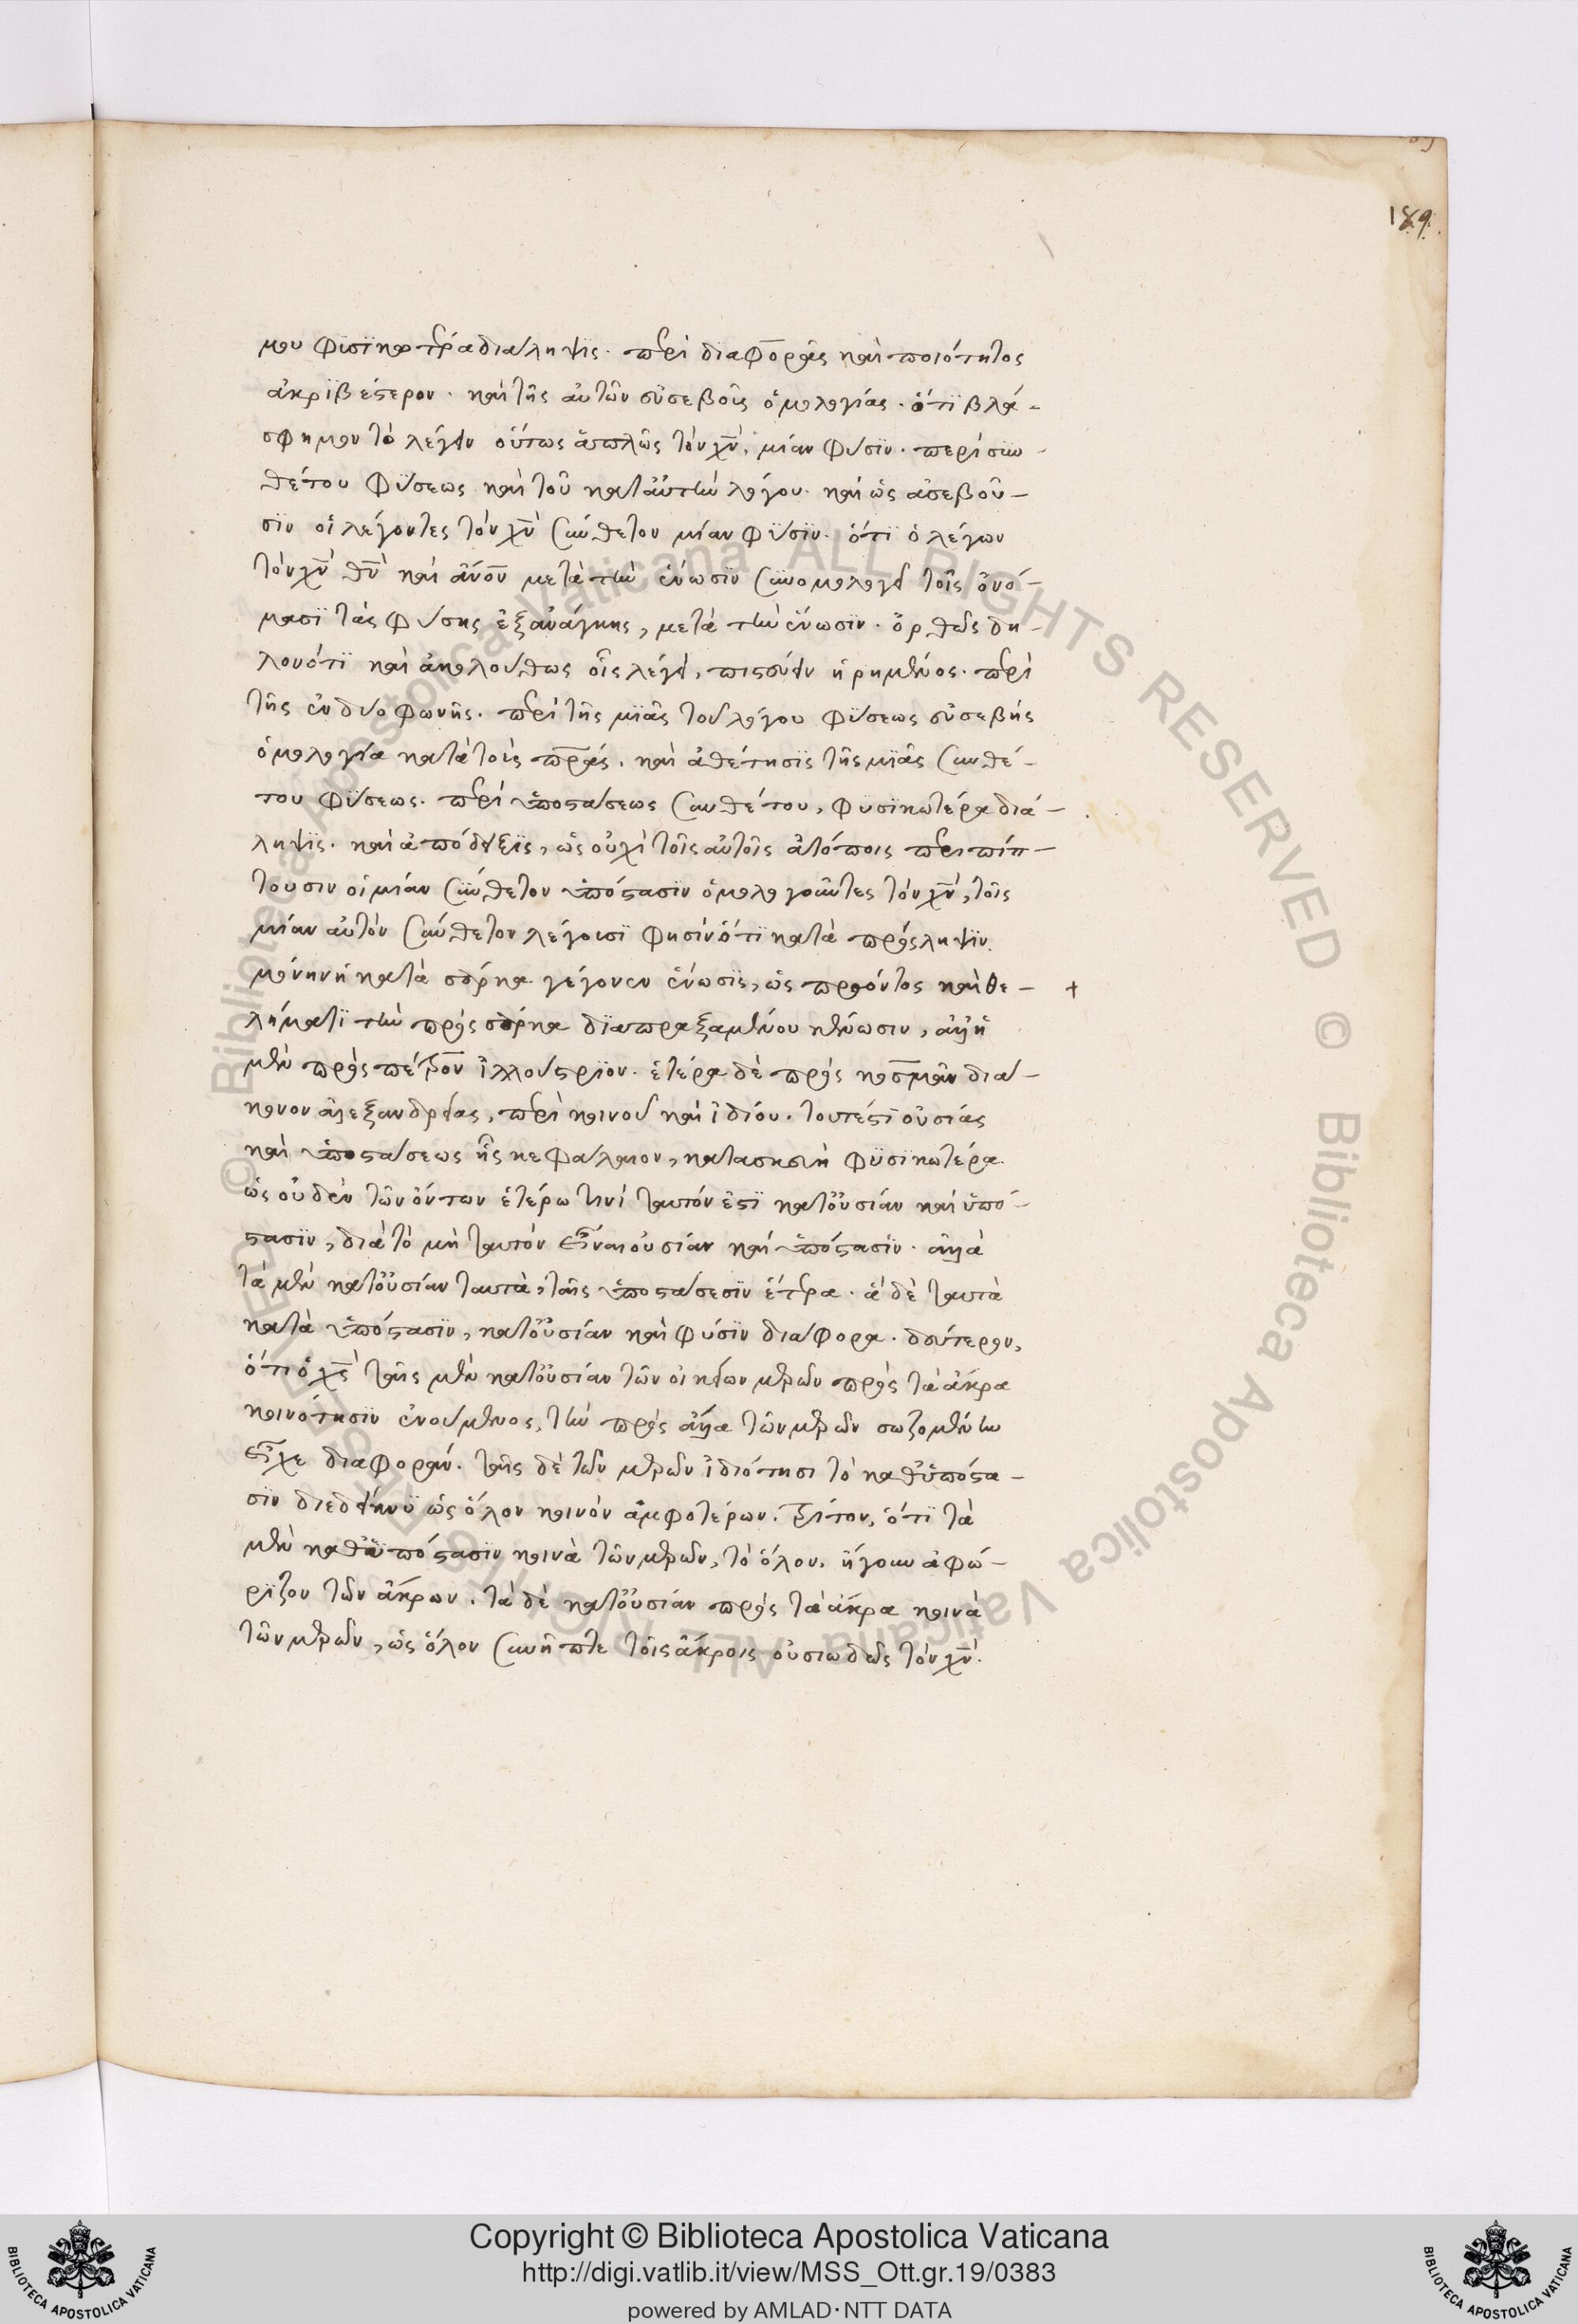 189.
μου φϋσϊκωτέρα διάληψϊς. περὶ δϊαφορᾶς καὶ ποιότητος
ἀκρϊβέστερον. καὶ τῆς αὐτῶν εὐσεβοῦς ὁμολογίας. ὅτϊ βλά-
σφημον τὸ λέγειν οὕτως ἁπλῶς τὸν χν̅, μίαν φύσϊν. περὶ συν-
θέτου φύσεως καὶ τοῦ κατ' αὐτὴν λόγου. καὶ ὡς ἀσεβοῦ-
σϊν οἱ λέγοντες τὸν χν̅ σύνθετον μίαν φϋσϊν. ὅτϊ ὁ λέγων
τὸν χν̅ θν̅ καὶ ἄνο̅ν̅ μετὰ τὴν ἕνωσϊν συνομολογεῖ τοῖς ὀνό-
μασϊ τὰς φύσεις ἐξ ἀνάγκης, μετὰ τὴν ἕνωσϊν. ὀρθῶς δη-
λονότϊ καὶ ἀκολούθως οἷς λέγει, πιστεύειν ᾑρημένος. περὶ
τῆς ἐν δύο φωνῆς. περὶ τῆς μϊᾶς τοῦ λόγου φϋσεως εὐσεβὴς
ὁμολογία κατὰ τοὺς πρας. καὶ ἀθέτησϊς τῆς μϊᾶς συνθέ-
του φϋσεως. περὶ ὑποστάσεως συνθέτου, φϋσϊκωτέρα διά-
ληψϊς. καὶ ἀπόδειξϊς, ὡς οὐχὶ τοῖς αὐτοῖς ἀτόποις περιπίπ-
τουσιν οἱ μίαν σύνθετον ὑπόστασϊν ὁμολογοῦντες τὸν χν̅, τοῖς
μίαν αὐτὸν σύνθετον λέγουσϊ φησὶν ὅτϊ κατὰ πρόσληψϊν.
μόνην ἡ κατὰ σάρκα γέγονεν ἕνωσϊς, ὡς προόντος καὶ θε- +
λήματϊ τὴν πρὸς σάρκα δϊαπραξαμένου κένωσιν, ἀλλ' ἡ
μὲν πρὸς πέτρον ἰλλούστρϊον. ἑτέρα δὲ πρὸς κοσμᾶν διά-
κονον ἀλεξανδρείας, περὶ κοινοῦ καὶ ἰδίου. τουτέστϊν οὐσίας
καὶ ὑποστάσεως ἧς κεφάλαιον, κατασκευὴ φϋσϊκωτέρα
ὡς οὐδὲν τῶν ὄντων ἑτέρω τινὶ ταυτόν ἐστϊ κατ' οὐσίαν καὶ ὑπό-
στασϊν, διὰ τὸ μὴ ταυτὸν εἶναι οὐσίαν καὶ ὑπόστασϊν. ἀλλὰ
τὰ μὲν κατ' οὐσίαν ταυτὰ, ταῖς ὑποστάσεσϊν ἕτερα. ἃ δὲ ταυτὰ
κατὰ ὑπόστασϊν, κατ' οὐσίαν καὶ φύσϊν διάφορα. δεύτερον,
ὅτι ὁ χς̅ ταῖς μὲν κατ' οὐσίαν τῶν οἰκείων μερῶν πρὸς τὰ ἄκρα
κοινότησϊν ἑνούμενος, τὴν πρὸς ἄλληλα τῶν μερῶν σωζομένην
εἶχε διαφοράν. ταῖς δὲ τῶν μερῶν ἰδιότησι τὸ καθ' ὑπόστα-
σϊν διεδείκνϋ ὡς ὅλον κοινὸν ἀμφοτέρων. τρίτον, ὅτϊ τὰ
μὲν καθ' ὑπόστασϊν κοινὰ τῶν μερῶν, τὸ ὅλον, ἤγουν ἀφώ-
ρϊζον τῶν ἄκρων. τὰ δὲ κατ' οὐσίαν πρὸς τὰ ἄκρα κοινὰ
τῶν μερῶν, ὡς ὅλον συνῆπτε τοῖς ἄκροις οὐσιωδῶς τὸν χν̅.
Copyright © Biblioteca Apostolica Vaticana
http://digi.vatlib.it/view/MSS_Ott.gr.19/0383
powered by AMLAD·NTT DATA